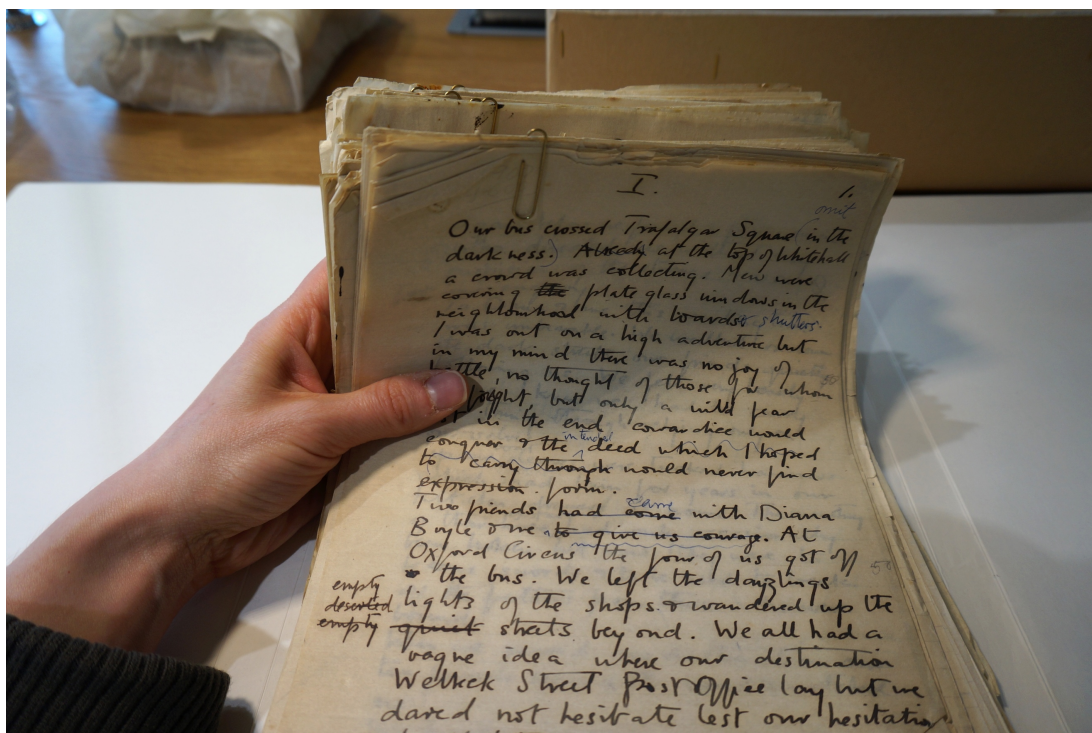 I.
1.
omit
Our bus crossed Trafalgar Square in the
darkness. Already at the top of Whitehall
a crowd was collecting. Men were
covering the plate glass windows in the
neighbourhood with boards or shutters.
I was out on a high adventure but
in my mind there was no joy of
battle, no thought of those for whom
fought, but only a wild fear
in the end cowardice would
conquer & the intended deed which I hoped
to carry through would never find
expression form.
Two friends had come came with Diana
Boyle & me to give us courage. At
Oxford Circus the four of us got off
the bus. We left the dazzling
empty
deserted lights of the shops & wandered up the
empty quiet streets beyond. We all had a
vague idea where our destination
Welbeck Street Post Office lay but we
dared not hesitate lest our hesitation